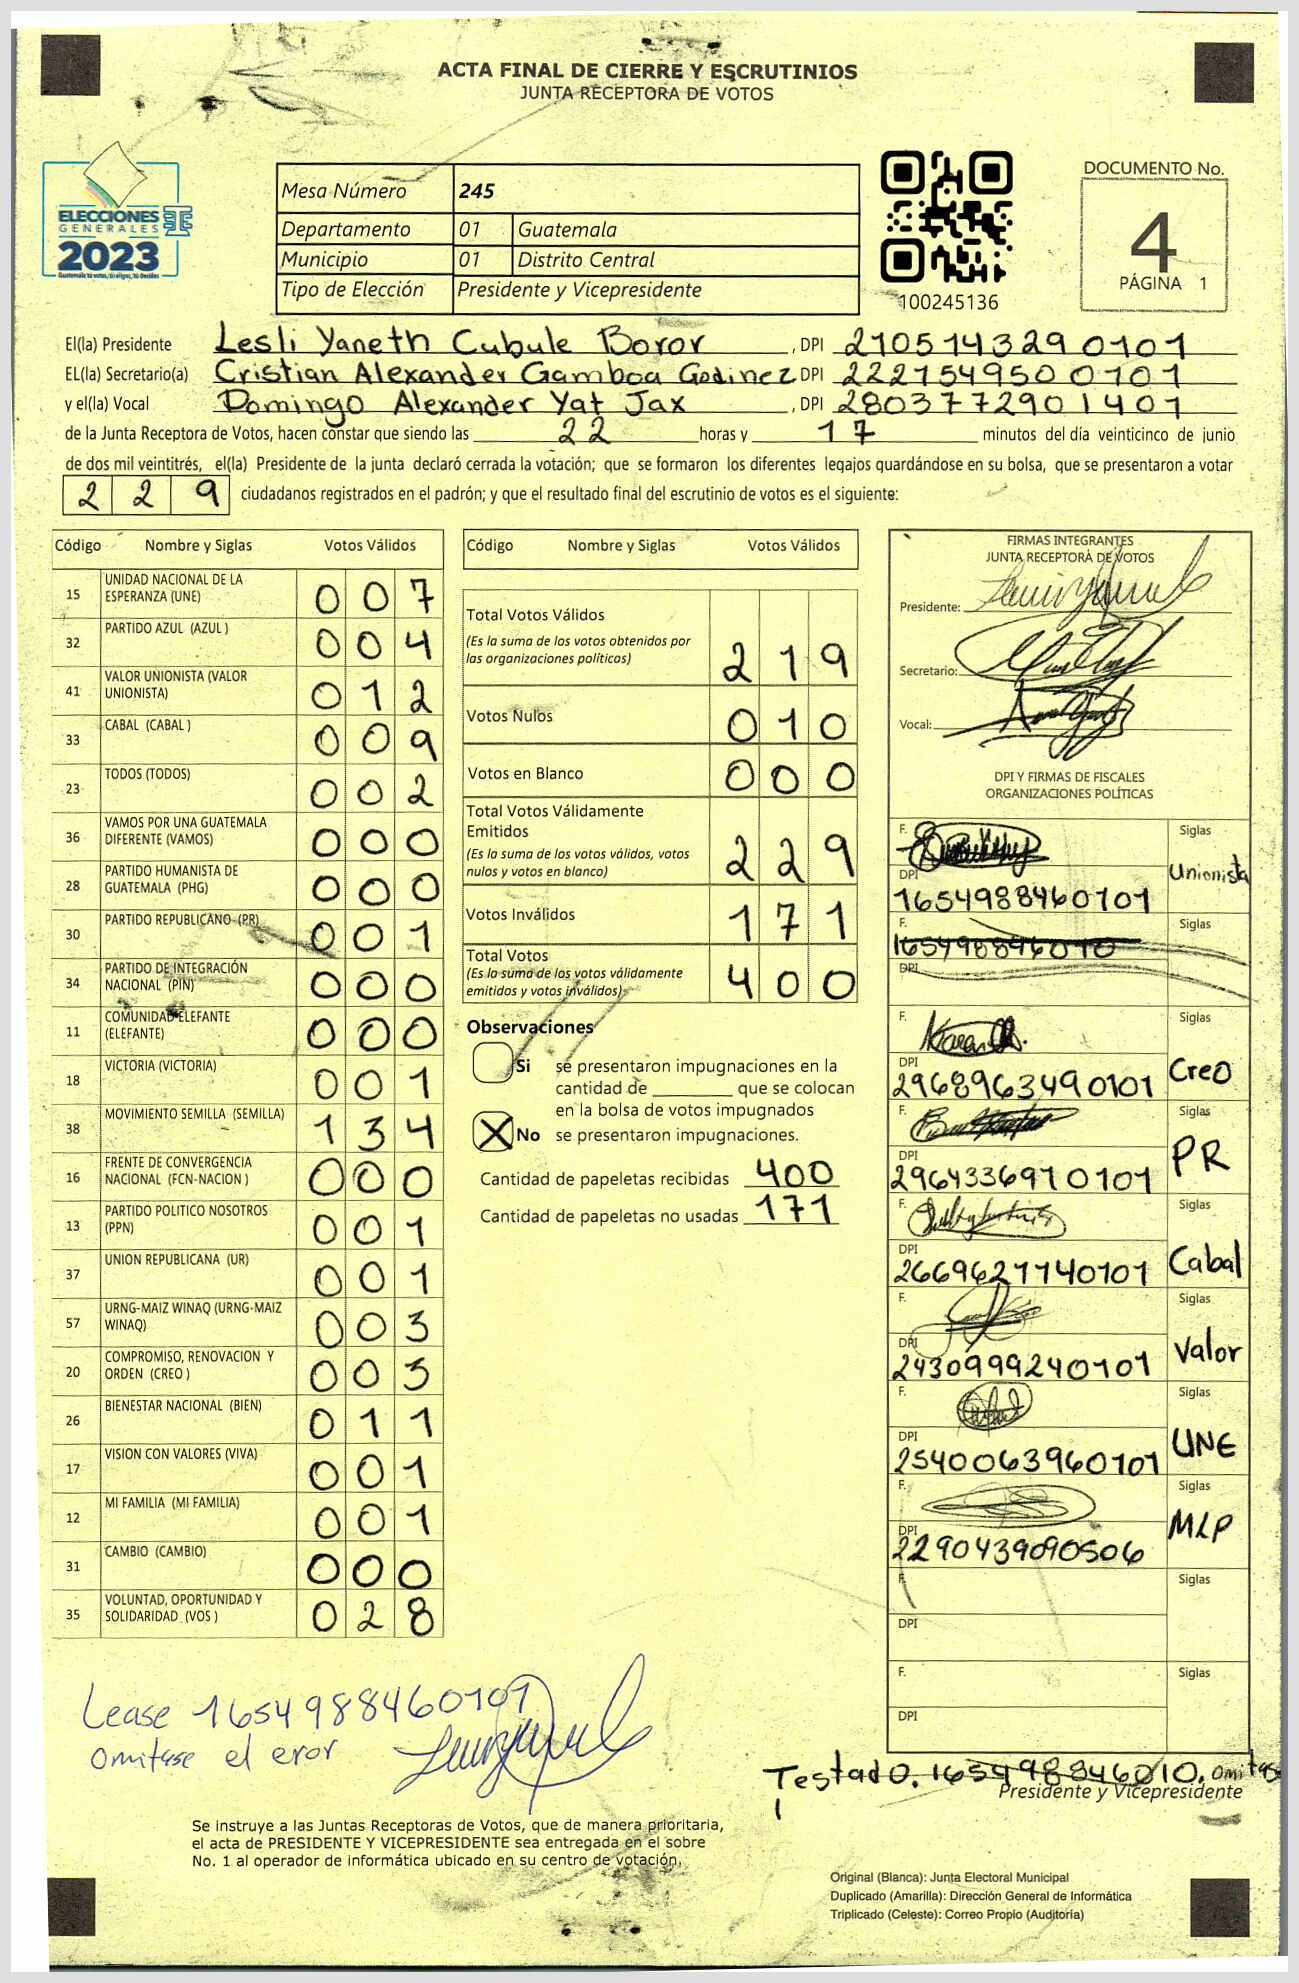 ACTA FINAL DE CIERRE Y ESCRUTINIOS
JUNTA RECEPTORA DE VOTOS
ELECCIONES
GENERALES
2023
Mesa Número 245
Departamento 01 Guatemala
Municipio 01 Distrito Central
Tipo de Elección Presidente y Vicepresidente
100245136
DOCUMENTO No.
4
PÁGINA 1
El(la) Presidente Lesli Yaneth Cubule Boror , DPI 2105143290101
EL(la) Secretario(a) Cristian Alexander Gamboa Godinez DPI 2221549500101
y el(la) Vocal Domingo Alexander Yat Jax , DPI 2803772901401
de la Junta Receptora de Votos, hacen constar que siendo las 22 horas y 17 minutos del día veinticinco de junio
de dos mil veintitrés, el(la) Presidente de la junta declaró cerrada la votación; que se formaron los diferentes legajos quardándose en su bolsa, que se presentaron a votar
2 2 9 ciudadanos registrados en el padrón; y que el resultado final del escrutinio de votos es el siguiente:
Código Nombre y Siglas Votos Válidos
15 UNIDAD NACIONAL DE LA ESPERANZA (UNE) 0 0 7
32 PARTIDO AZUL (AZUL ) 0 0 4
41 VALOR UNIONISTA (VALOR UNIONISTA) 0 1 2
33 CABAL (CABAL ) 0 0 9
23 TODOS (TODOS) 0 0 2
36 VAMOS POR UNA GUATEMALA DIFERENTE (VAMOS) 0 0 0
28 PARTIDO HUMANISTA DE GUATEMALA (PHG) 0 0 0
30 PARTIDO REPUBLICANO (PR) 0 0 1
34 PARTIDO DE INTEGRACIÓN NACIONAL (PIN) 0 0 0
11 COMUNIDAD ELEFANTE (ELEFANTE) 0 0 0
18 VICTORIA (VICTORIA) 0 0 1
38 MOVIMIENTO SEMILLA (SEMILLA) 1 3 4
16 FRENTE DE CONVERGENCIA NACIONAL (FCN-NACION ) 0 0 0
13 PARTIDO POLITICO NOSOTROS (PPN) 0 0 1
37 UNION REPUBLICANA (UR) 0 0 1
57 URNG-MAIZ WINAQ (URNG-MAIZ WINAQ) 0 0 3
20 COMPROMISO, RENOVACION Y ORDEN (CREO ) 0 0 3
26 BIENESTAR NACIONAL (BIEN) 0 1 1
17 VISION CON VALORES (VIVA) 0 0 1
12 MI FAMILIA (MI FAMILIA) 0 0 1
31 CAMBIO (CAMBIO) 0 0 0
35 VOLUNTAD, OPORTUNIDAD Y SOLIDARIDAD (VOS ) 0 2 8
Código Nombre y Siglas Votos Válidos
Total Votos Válidos 2 1 9
(Es la suma de los votos obtenidos por
las organizaciones políticas)
Votos Nulos 0 1 0
Votos en Blanco 0 0 0
Total Votos Válidamente
Emitidos 2 2 9
(Es la suma de los votos válidos, votos
nulos y votos en blanco)
Votos Inválidos 1 7 1
Total Votos 4 0 0
(Es la suma de los votos válidamente
emitidos y votos inválidos)
Observaciones
Si se presentaron impugnaciones en la
cantidad de ________ que se colocan
en la bolsa de votos impugnados
X No se presentaron impugnaciones.
Cantidad de papeletas recibidas 400
Cantidad de papeletas no usadas 171
FIRMAS INTEGRANTES
JUNTA RECEPTORA DE VOTOS
Presidente:
Secretario:
Vocal:
DPI Y FIRMAS DE FISCALES
ORGANIZACIONES POLÍTICAS
F. Siglas
DPI Unionista
1654988460101
F. Siglas
165498846010
DPI
F. Siglas
DPI Creo
2968963490101
F. Siglas
DPI PR
2964336910101
F. Siglas
DPI Cabal
2669621140101
F. Siglas
DPI Valor
2430999240101
F. Siglas
DPI UNE
2540063960101
F. Siglas
DPI MLP
2290439090506
F. Siglas
DPI
F. Siglas
DPI
Lease 1654988460101
omitase el eror
Testado. 165498846010. omitase
Presidente y Vicepresidente
Se instruye a las Juntas Receptoras de Votos, que de manera prioritaria,
el acta de PRESIDENTE Y VICEPRESIDENTE sea entregada en el sobre
No. 1 al operador de informática ubicado en su centro de votación.
Original (Blanca): Junta Electoral Municipal
Duplicado (Amarilla): Dirección General de Informática
Triplicado (Celeste): Correo Propio (Auditoría)